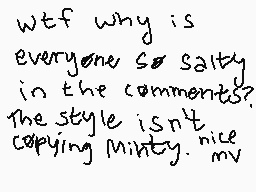 wtf why is
everyone so salty
in the comments?
The style isn't
copying Minty. nice
mv